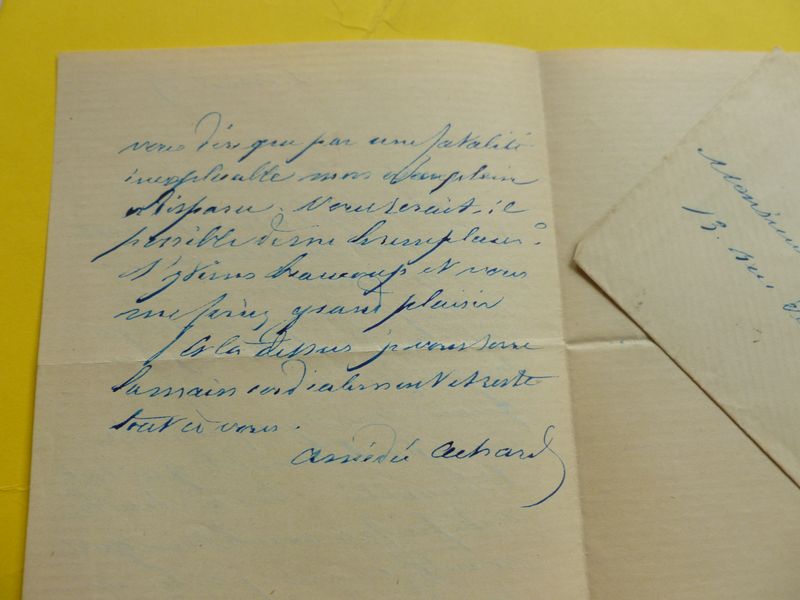 vous dire que par une fatalité
inexplicable mon exemplaire
a disparu. Vous serait-il
possible de me le remplacer?
J'y tiens beaucoup et vous
me feriez grand plaisir
Et là dessus je vous serre
la main cordialement et reste
tout à vous.
Amédée Achard
Monsieur
13. rue